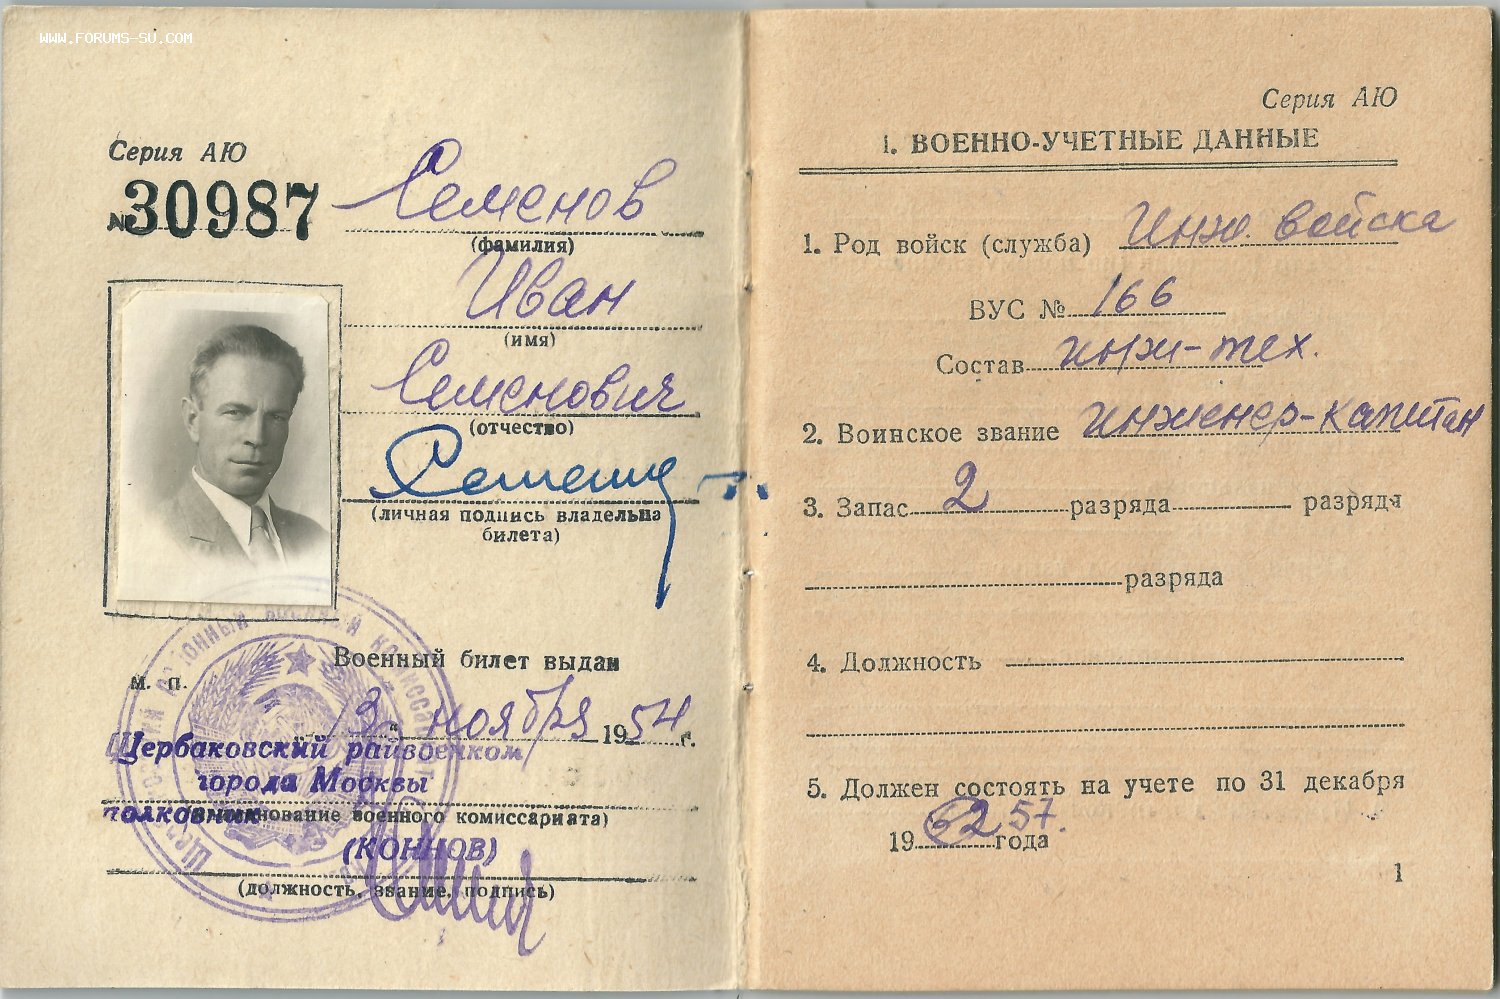 WWW.FORUMS-SU.COM
Серия АЮ
№ 30987
Семенов
(фамилия)
Иван
(имя)
Семенович
(отчество)
(личная подпись владельца
билета)
Военный билет выдан
М. П.
13 ноября 1954 г.
Щербаковский райвоенком
города Москвы
полковник
(наименование военного комиссариата)
(КОННОВ)
(должность, звание, подпись)
Серия АЮ
1. ВОЕННО-УЧЕТНЫЕ ДАННЫЕ
1. Род войск (служба) Инж. войска
ВУС № 166
Состав инж-тех.
2. Воинское звание инженер-капитан
3. Запас 2 разряда разряда
разряда
4. Должность
5. Должен состоять на учете по 31 декабря
19 62 57. года
1